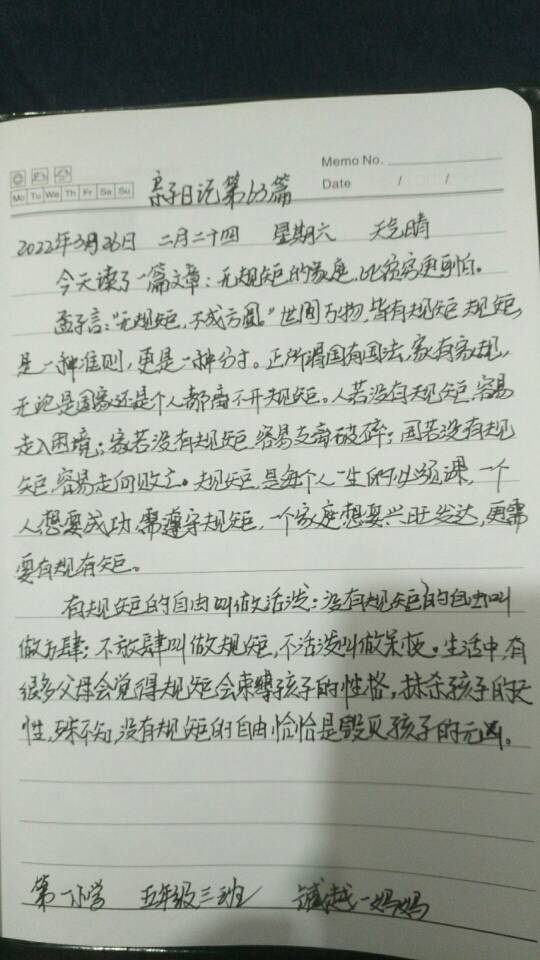 Memo No.
Mo Tu We Th Fr Sa Su
Date / /
亲子日记第63篇
2022年3月26日 二月二十四 星期六 天气晴
今天读了一篇文章:无规矩的家庭,比贫穷更可怕。
孟子言:“无规矩,不成方圆。”世间万物,皆有规矩,规矩,
是一种准则,更是一种分寸。正所谓国有国法,家有家规,
无论是国家还是个人都离不开规矩。人若没有规矩,容易
走入困境;家若没有规矩,容易支离破碎;国若没有规
矩,容易走向败亡。规矩,是每个人一生的必须课,一个
人想要成功,需遵守规矩,一个家庭想要兴旺发达,更需
要有规有矩。
有规矩的自由叫做活泼;没有规矩的自由叫
做放肆;不放肆叫做规矩,不活泼叫做呆板。生活中,有
很多父母会觉得规矩会束缚孩子的性格,抹杀孩子的天
性,殊不知,没有规矩的自由,恰恰是毁灭孩子的元凶。
第一小学 五年级三班 越一妈妈